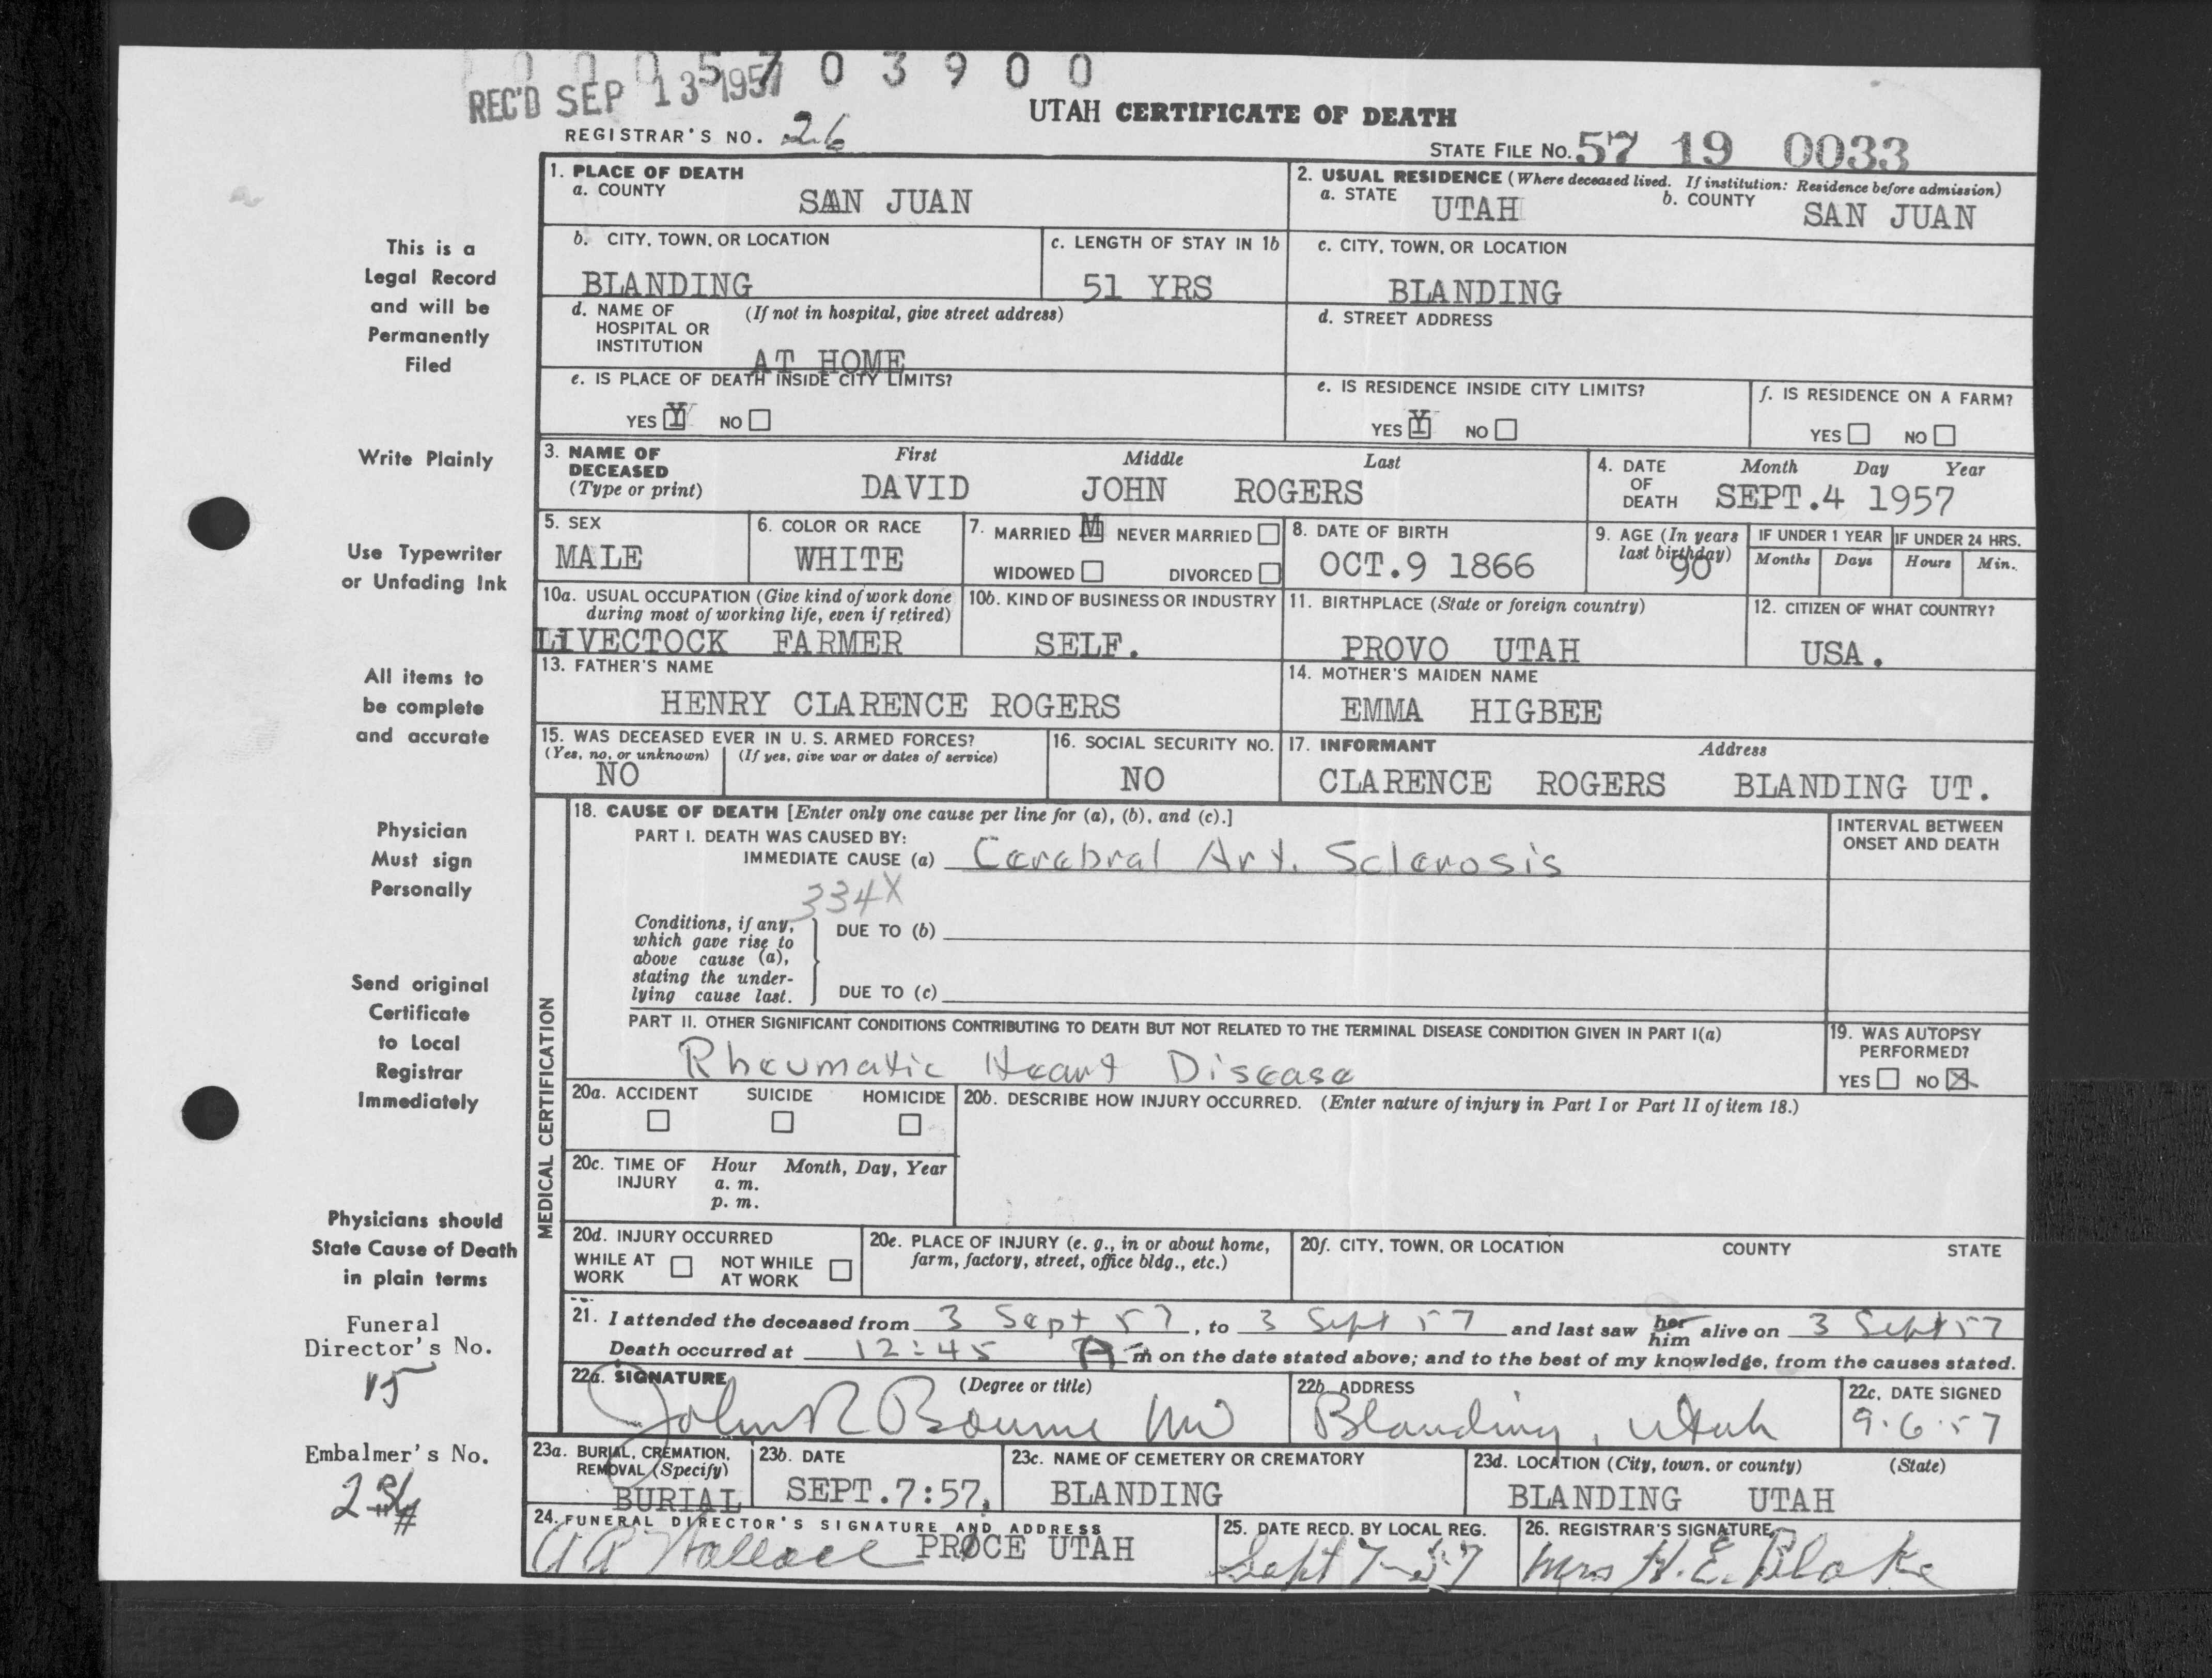 0 0 0 5 7 0 3 9 0 0
REC'D SEP 13 1957
UTAH CERTIFICATE OF DEATH
REGISTRAR'S NO. 26
STATE FILE NO. 57 19 0033
This is a
Legal Record
and will be
Permanently
Filed
Write Plainly
Use Typewriter
or Unfading Ink
All items to
be complete
and accurate
Physician
Must sign
Personally
Send original
Certificate
to Local
Registrar
Immediately
Physicians should
State Cause of Death
in plain terms
Funeral
Director's No.
15
Embalmer's No.
1. PLACE OF DEATH
a. COUNTY
SAN JUAN
2. USUAL RESIDENCE (Where deceased lived. If institution: Residence before admission)
a. STATE UTAH b. COUNTY SAN JUAN
b. CITY, TOWN, OR LOCATION
BLANDING
c. LENGTH OF STAY IN 1b
51 YRS
c. CITY, TOWN, OR LOCATION
BLANDING
d. NAME OF (If not in hospital, give street address)
HOSPITAL OR
INSTITUTION
AT HOME
d. STREET ADDRESS
e. IS PLACE OF DEATH INSIDE CITY LIMITS?
YES Y NO
e. IS RESIDENCE INSIDE CITY LIMITS?
YES Y NO
f. IS RESIDENCE ON A FARM?
YES NO
3. NAME OF
DECEASED
(Type or print)
First Middle Last
DAVID JOHN ROGERS
4. DATE
OF
DEATH
Month Day Year
SEPT.4 1957
5. SEX
MALE
6. COLOR OR RACE
WHITE
7. MARRIED M NEVER MARRIED
WIDOWED DIVORCED
8. DATE OF BIRTH
OCT.9 1866
9. AGE (In years
last birthday)
90
IF UNDER 1 YEAR
Months Days
IF UNDER 24 HRS.
Hours Min.
10a. USUAL OCCUPATION (Give kind of work done
during most of working life, even if retired)
LIVECTOCK FARMER
10b. KIND OF BUSINESS OR INDUSTRY
SELF.
11. BIRTHPLACE (State or foreign country)
PROVO UTAH
12. CITIZEN OF WHAT COUNTRY?
USA.
13. FATHER'S NAME
HENRY CLARENCE ROGERS
14. MOTHER'S MAIDEN NAME
EMMA HIGBEE
15. WAS DECEASED EVER IN U. S. ARMED FORCES?
(Yes, no, or unknown) (If yes, give war or dates of service)
NO
16. SOCIAL SECURITY NO.
NO
17. INFORMANT Address
CLARENCE ROGERS BLANDING UT.
MEDICAL CERTIFICATION
18. CAUSE OF DEATH [Enter only one cause per line for (a), (b), and (c).]
PART I. DEATH WAS CAUSED BY:
IMMEDIATE CAUSE (a) Cerebral Art. Sclerosis
INTERVAL BETWEEN
ONSET AND DEATH
334X
Conditions, if any,
which gave rise to
above cause (a),
stating the under-
lying cause last.
DUE TO (b)
DUE TO (c)
PART II. OTHER SIGNIFICANT CONDITIONS CONTRIBUTING TO DEATH BUT NOT RELATED TO THE TERMINAL DISEASE CONDITION GIVEN IN PART I(a)
Rheumatic Heart Disease
19. WAS AUTOPSY
PERFORMED?
YES NO X
20a. ACCIDENT SUICIDE HOMICIDE
20b. DESCRIBE HOW INJURY OCCURRED. (Enter nature of injury in Part I or Part II of item 18.)
20c. TIME OF Hour Month, Day, Year
INJURY a. m.
p. m.
20d. INJURY OCCURRED
WHILE AT
WORK
NOT WHILE
AT WORK
20e. PLACE OF INJURY (e. g., in or about home,
farm, factory, street, office bldg., etc.)
20f. CITY, TOWN, OR LOCATION COUNTY STATE
21. I attended the deceased from 3 Sept 57, to 3 Sept 57 and last saw her him alive on 3 Sept 57
Death occurred at 12:45 A m on the date stated above; and to the best of my knowledge, from the causes stated.
22a. SIGNATURE (Degree or title)
John R Bourne MD
22b. ADDRESS
Blanding, Utah
22c. DATE SIGNED
9.6.57
23a. BURIAL, CREMATION,
REMOVAL (Specify)
BURIAL
23b. DATE
SEPT.7:57.
23c. NAME OF CEMETERY OR CREMATORY
BLANDING
23d. LOCATION (City, town, or county) (State)
BLANDING UTAH
24. FUNERAL DIRECTOR'S SIGNATURE AND ADDRESS
Wallace PROCE UTAH
25. DATE RECD. BY LOCAL REG.
Sept 7-57
26. REGISTRAR'S SIGNATURE
Mrs H. E. Blake